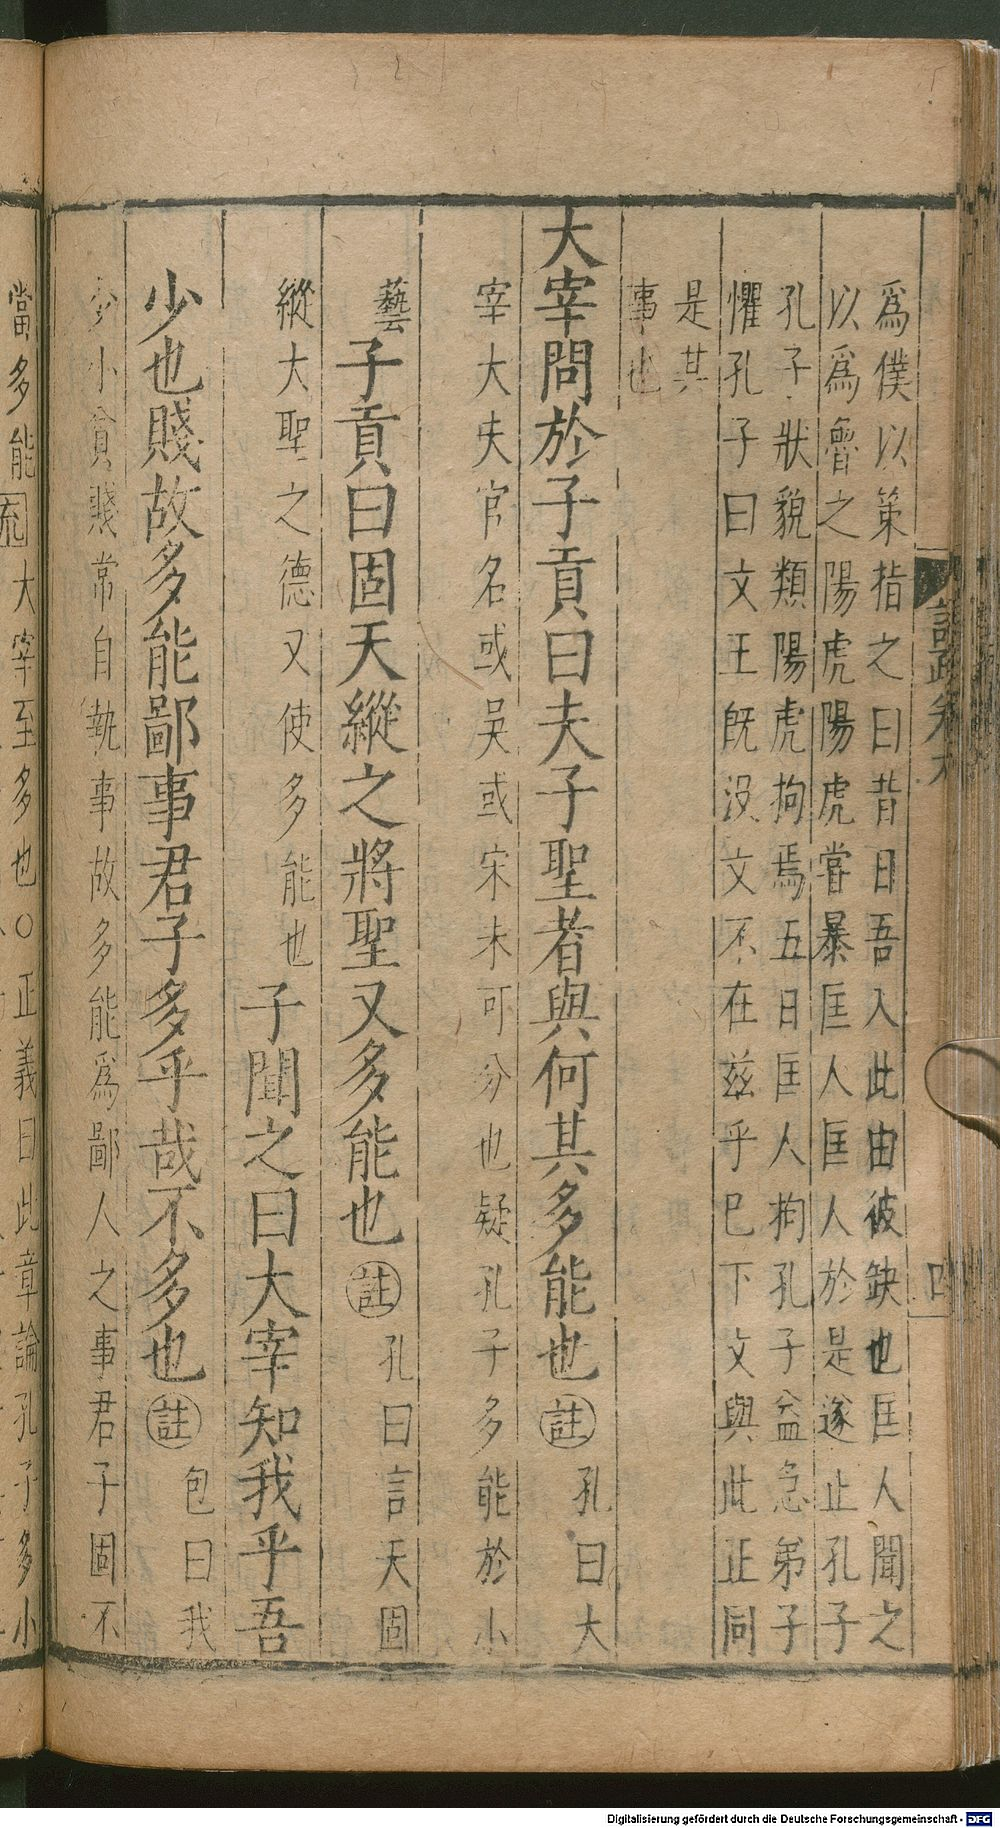 爲僕以策指之曰昔日吾入此由彼缺也匡人聞之
以爲魯之陽虎陽虎嘗暴匡人匡人於是遂止孔子
孔子狀貌類陽虎拘焉五日匡人拘孔子益急弟子
懼孔子曰文王旣没文不在兹乎巳下文與此正同
是其
事也
大宰問於子貢曰夫子聖者與何其多能也註孔曰大
宰大夫官名或吳或宋未可分也疑孔子多能於小
藝子貢曰固天縱之將聖又多能也註孔曰言天固
縱大聖之德又使多能也子聞之曰大宰知我乎吾
少也賤故多能鄙事君子多乎哉不多也註包曰我
少小貧賤常自執事故多能爲鄙人之事君子固不
當多能疏大宰至多也○正義曰此章論孔子多小
Digitalisierung gefördert durch die Deutsche Forschungsgemeinschaft - DFG